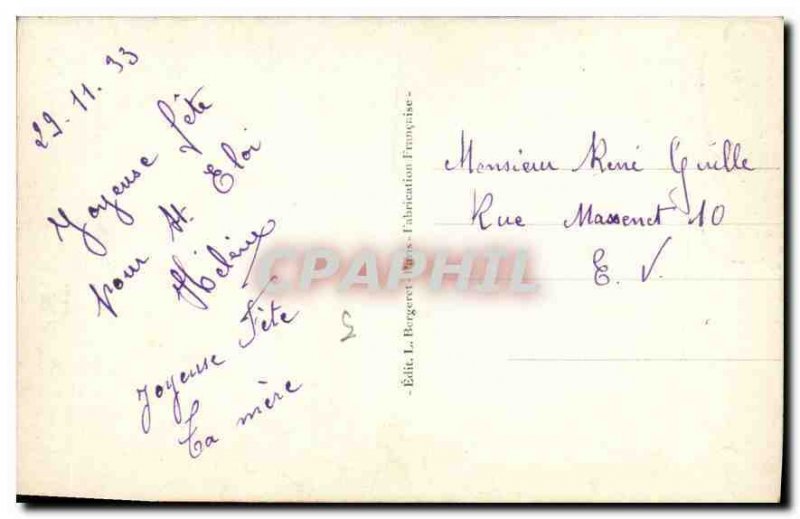 29-11.33
Joyeuse fête
pour St. Eloi
Hélène
Joyeuse Fête
Ta mère
- Édit. L. Bergeret - Paris - Fabrication Française -
Monsieur René
Rue Massenet 10
E. V.
CPAPHIL